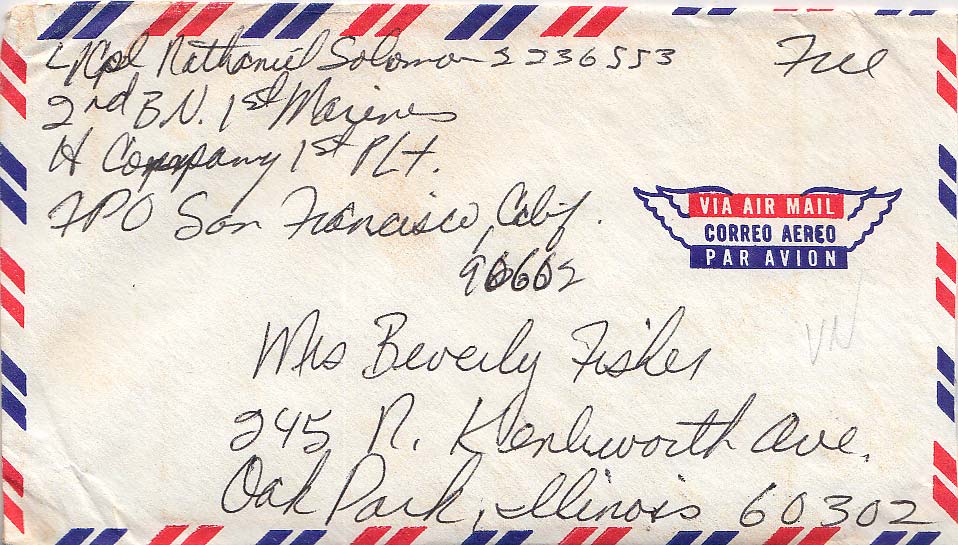 L/Cpl Nathaniel Solomon 2236553
Free
2nd B.N. 1st Marines
H Company 1st PLt.
FPO San Francisco, Calif.
96602
VIA AIR MAIL
CORREO AEREO
PAR AVION
VN
Mrs Beverly Fisher
245 N. Kenilworth Ave.
Oak Park, Illinois 60302